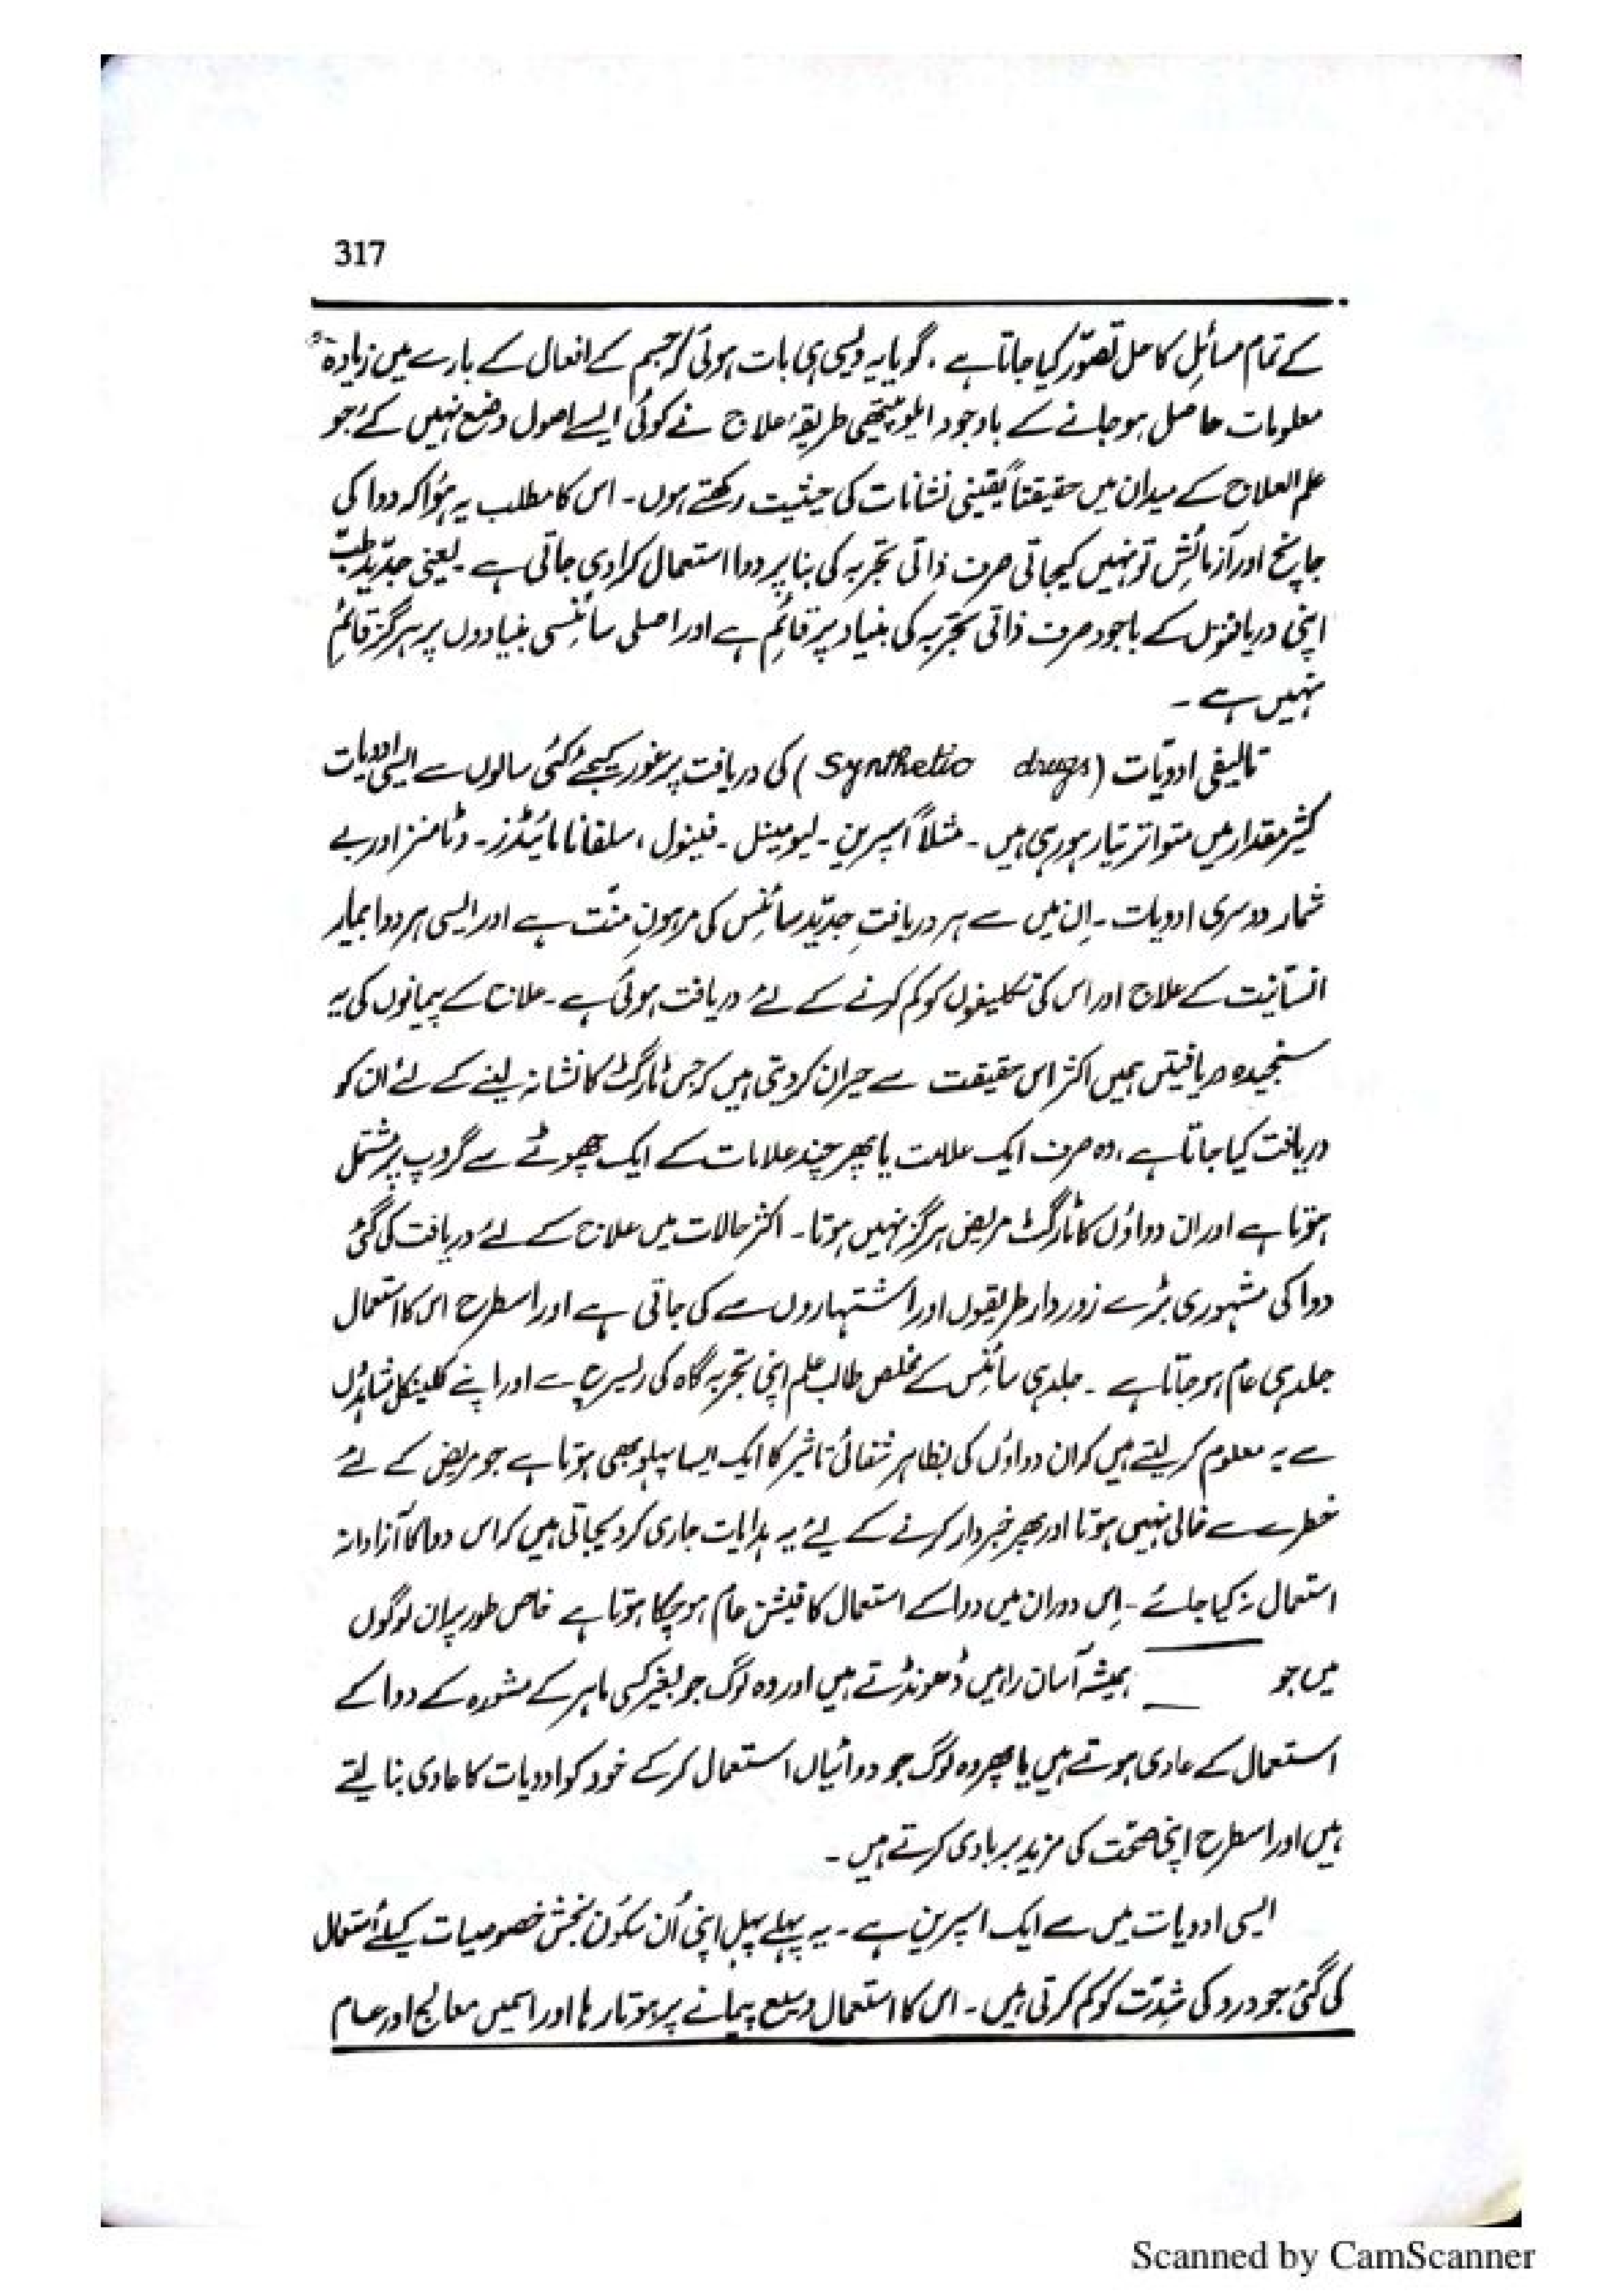 317
کے تمام مسائل کا حل تصوّر کیا جاتا ہے ۔ گویا یہ ویسی ہی بات ہوئی کہ جسم کے افعال کے بارے میں زیادہ
معلومات حاصل ہو جانے کے باوجود ایلوپیتھی طریقۂ علاج نے کوئی ایسے اصول وضع نہیں کئے جو
علم العلاج کے میدان میں حقیقتاً یقینی نشانات کی حیثیت رکھتے ہوں ۔ اس کا مطلب یہ ہؤا کہ دوا کی
جانچ اور آزمائش تو نہیں کیجاتی صرف ذاتی تجربہ کی بنا پر دوا استعمال کرا دی جاتی ہے ۔ یعنی جدّید طبّ
اپنی دریافتوں کے باجود صرف ذاتی تجربہ کی بنیاد پر قائم ہے اور اصلی سائنسی بنیادوں پر ہرگز قائم
نہیں ہے ۔
تالیفی ادویّات (Synthetic drugs) کی دریافت پر غور کیجئے کئی سالوں سے ایسی ادویات
کثیر مقدار میں متواتر تیار ہو رہی ہیں ۔ مثلاً اسپرین ۔ لیومینل ۔ فینول ، سلفانامائیڈز ۔ وٹامنز اور بے
شمار دوسری ادویات ۔ اِن میں سے ہر دریافت جدّید سائنس کی مرہونِ منّت ہے اور ایسی ہر دوا بیمار
انسانیّت کے علاج اور اس کی تکلیفوں کو کم کرنے کے لئے دریافت ہوئی ہے ۔ علاج کے پیمانوں کی یہ
سنجیدہ دریافتیں ہمیں اکثر اس حقیقت سے حیران کر دیتی ہیں کہ جس ٹارگٹ کا نشانہ لینے کے لئے ان کو
دریافت کیا جاتا ہے ، وہ صرف ایک علامت یا پھر چند علامات کے ایک چھوٹے سے گروپ پر مشتمل
ہوتا ہے اور ان دواؤں کا ٹارگٹ مریض ہرگز نہیں ہوتا ۔ اکثر حالات میں علاج کے لئے دریافت کی گئی
دوا کی مشہوری بڑے زور دار طریقوں اور اشتہاروں سے کی جاتی ہے اور اسطرح اس کا استعمال
جلد ہی عام ہو جاتا ہے ۔ جلد ہی سائنس کے مخلص طالب علم اپنی تجربہ گاہ کی ریسرچ سے اور اپنے کلینیکل مشاہدوں
سے یہ معلوم کر لیتے ہیں کہ ان دواؤں کی بظاہر شفائی تاثیر کا ایک ایسا پہلو بھی ہوتا ہے جو مریض کے لئے
خطرے سے خالی نہیں ہوتا اور پھر خبردار کرنے کے لیے یہ ہدایات جاری کر دیجاتی ہیں کہ اس دوا کا آزادانہ
استعمال نہ کیا جائے ۔ اِس دوران میں دوا کے استعمال کا فیشن عام ہو چکا ہوتا ہے خاص طور پر ان لوگوں
میں جو ہمیشہ آسان راہیں ڈھونڈتے ہیں اور وہ لوگ جو بغیر کسی ماہر کے مشورہ کے دوا کے
استعمال کے عادی ہوتے ہیں یا پھر وہ لوگ جو دوائیاں استعمال کر کے خود کو ادویات کا عادی بنا لیتے
ہیں اور اسطرح اپنی صحّت کی مزید بربادی کرتے ہیں ۔
ایسی ادویات میں سے ایک اسپرین ہے ۔ یہ پہلے پہل اپنی اُن سکون بخش خصوصیات کیلئے استعمال
کی گئی جو درد کی شدّت کو کم کرتی ہیں ۔ اس کا استعمال وسیع پیمانے پر ہوتا رہا اور اسمیں معالج اور عام
Scanned by CamScanner